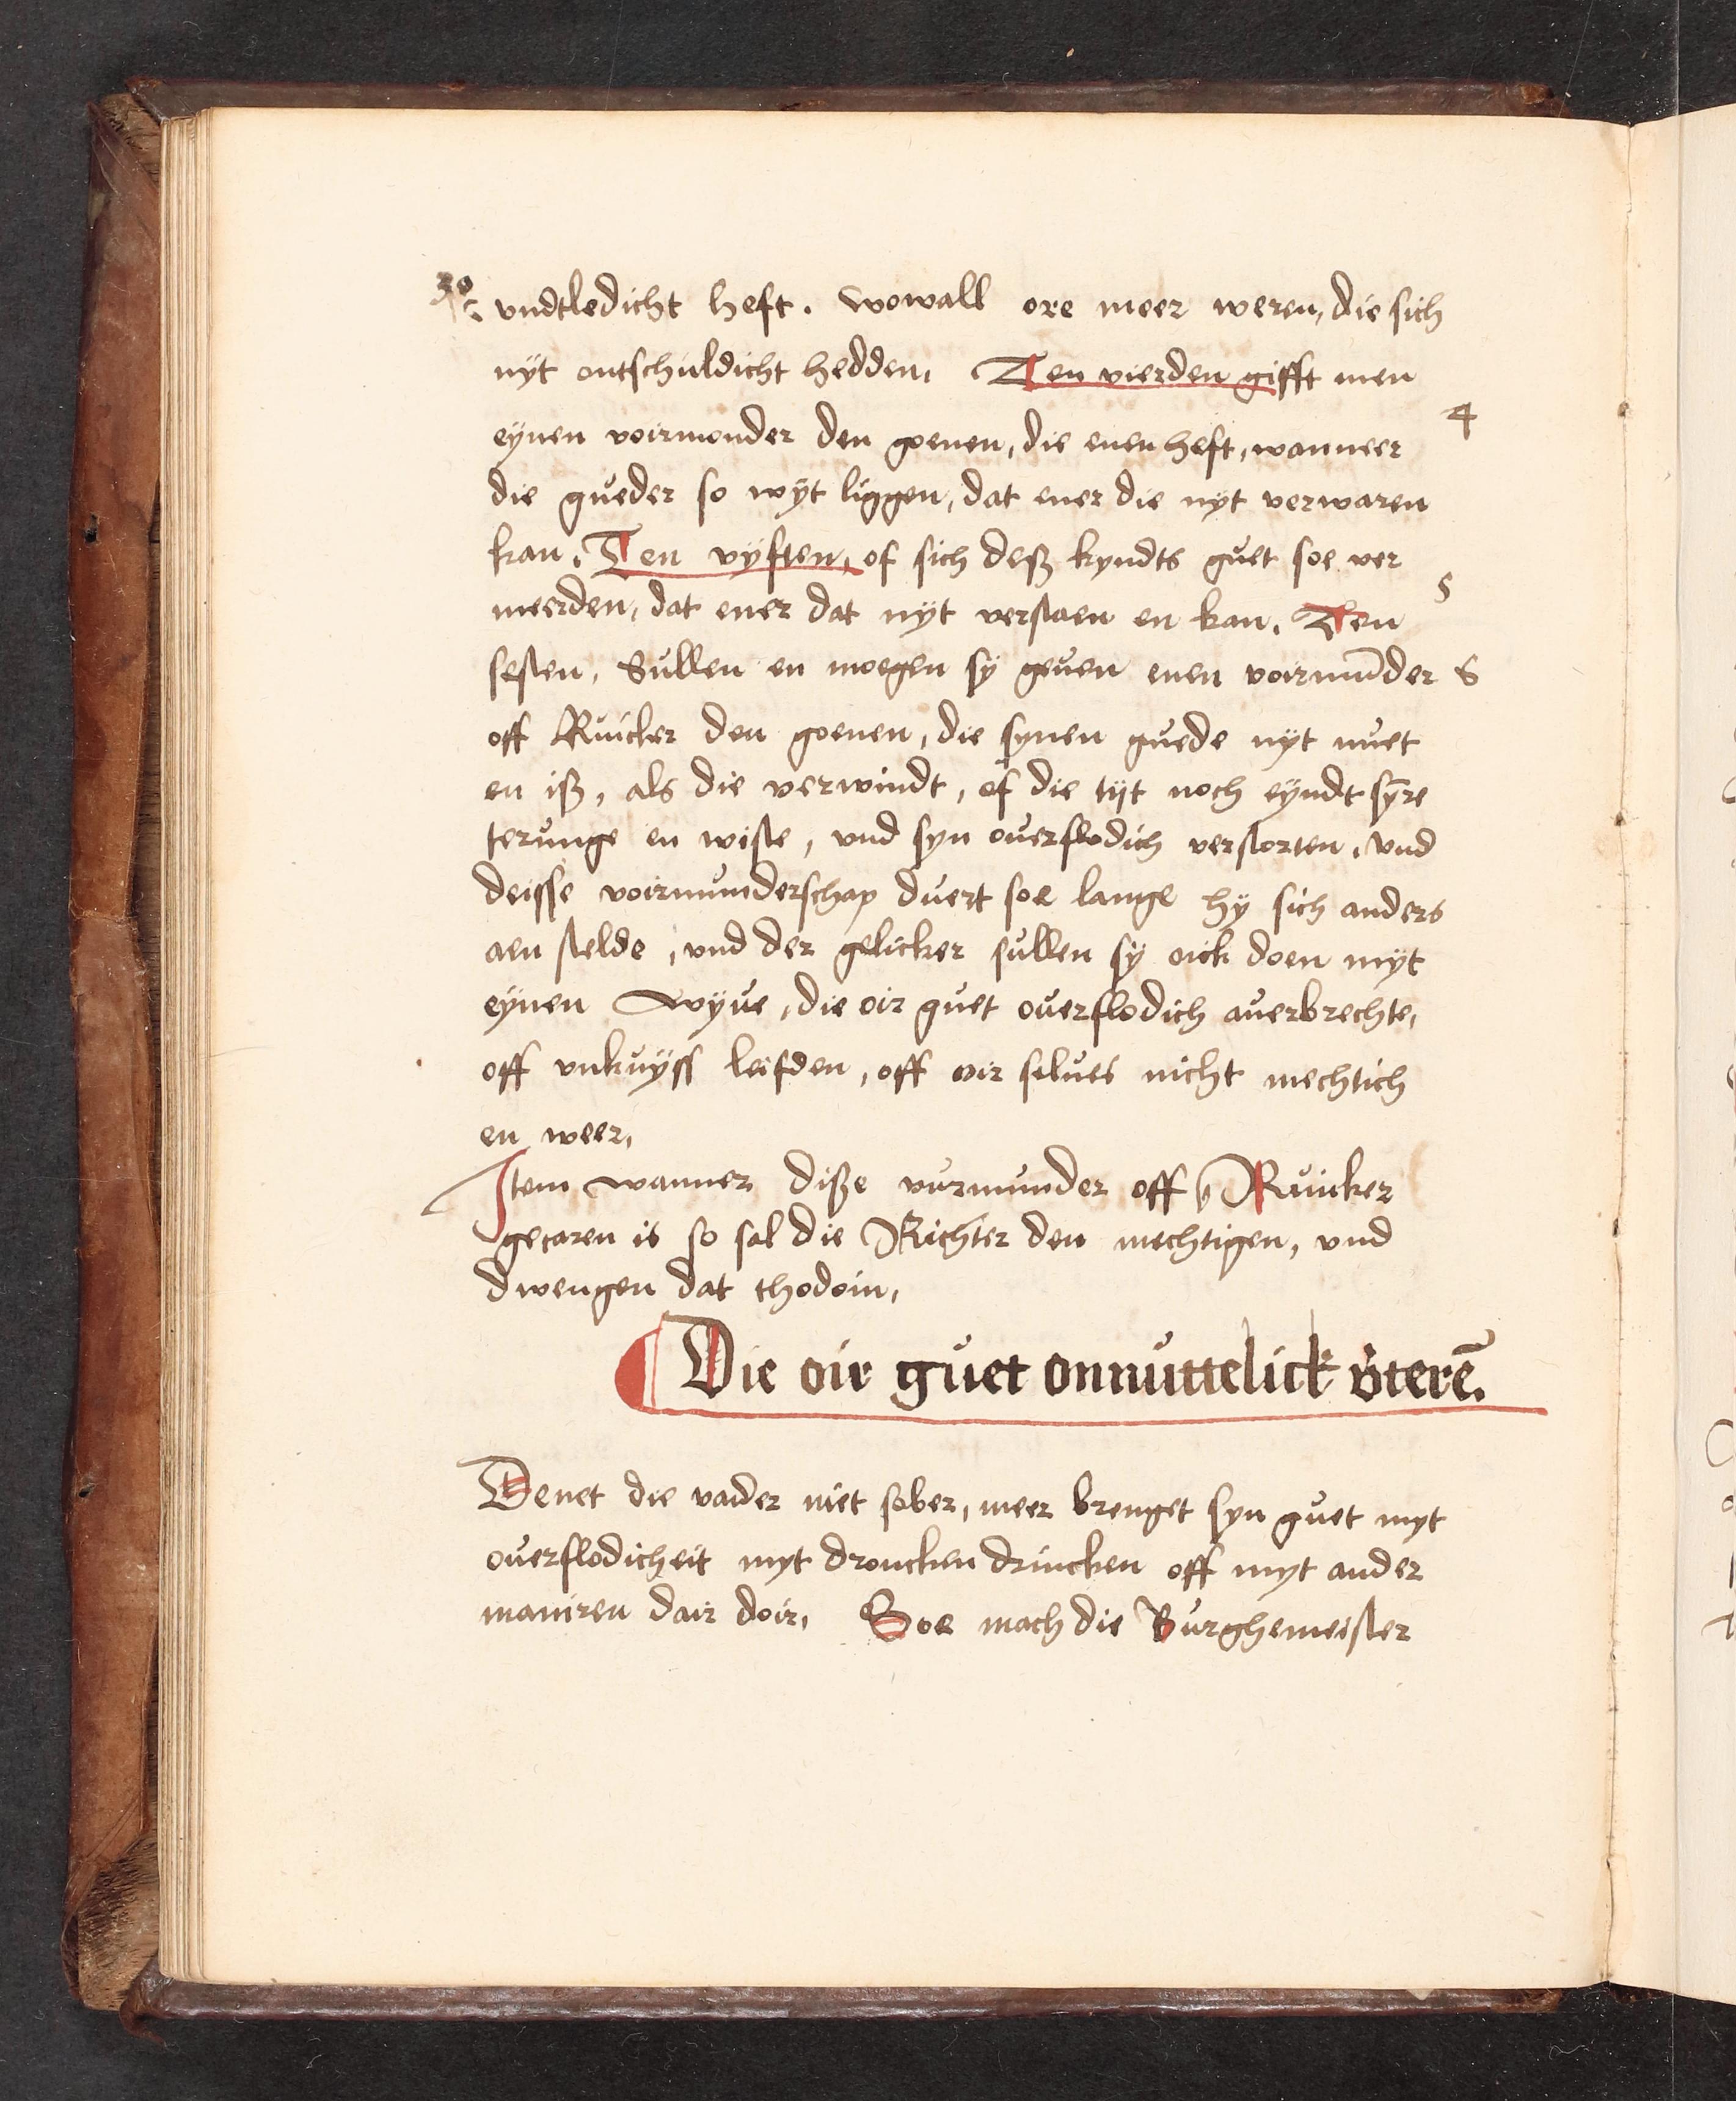 vndtledicht heft. wowall ore meer weren, die sich
nyt ontschuldicht hedden, Ten vierden gifft men
4
eynen voirmonder den goenen, die enen heft, wanneer
die gueder so wyt liggen, dat ener die nyt verwaren
kan. Ten vyften, of sich deß kyndts guet soe ver
5
meerden, dat ener dat nyt verstaen en kan. Ten
sesten, Sullen en moegen sy geuen enen voirmūder 6
off Ruicker den goenen, die synen guede nyt nuet
en iß, als die verwindt, of die tijt noch eyndt syre
terunge en wiste, vnd syn ouerflodich verstorten, vnd
deisse voirmunderschap duert soe lange hy sich anders
aen stelde, vnd der gelicker sullen sy oick doen myt
eynen wyue, die oir guet ouerflodich auerbrechte,
off vnkuyss leifden, off oir selues nicht mechtich
en weer,
Item wanner diße vurmunder off Ruicker
gecaren is so sal die Richter den mechtigen, vnd
dwengen dat thodoin,
Die oir guet onnuttelick v̓terē.
Denet die vader niet sober, meer brenget syn guet myt
ouerflodicheit myt droncken drincken off myt ander
maniren dair doir, Soe mach die Burghemeister